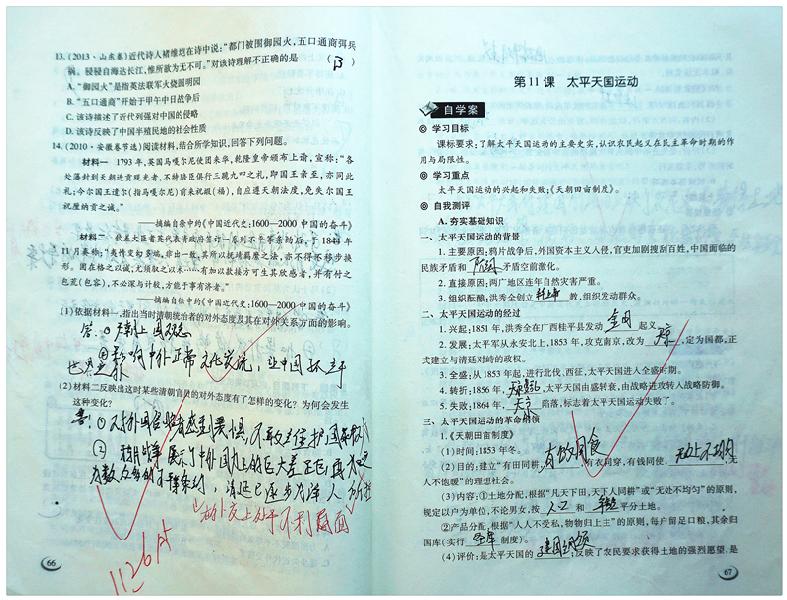 13.(2013·山东泰)近代诗人褚维垲在诗中说:“都门被围御园火,五口通商弭兵
祸。骎骎自海达长江,惟所欲为无不可。”对该诗理解不正确的是 (B)
A.“御园火”是指英法联军火烧圆明园
B.“五口通商”开始于甲午中日战争后
C.该诗描述了近代列强对中国的侵略
D.该诗反映了中国半殖民地的社会性质
14.(2010·安徽卷节选)阅读材料,结合所学知识,回答下列问题。
材料一 1793年,英国马嘎尔尼使团来华,乾隆皇帝颁布上谕,宣称:“各
处藩封到天朝进贡观光者,不特陪臣俱行三跪九叩之礼,即国王亲至,亦同此
礼;今尔国王遣尔(指马嘎尔尼)前来祝嘏(福),自应遵天朝法度,免失尔国王
祝厘纳贡之诚。”
——摘编自徐中约《中国近代史:1600—2000 中国的奋斗》
材料二 钦差大臣耆英代表清政府签订一系列不平等条约后,于1844年
11月奏称:“夷情变幻多端,非出一致,其所以抚绥羁縻之法,亦不得不移步换
形。固在格之以诚,尤须驭之以术……有加以款接方可生其欣感者,并有付之
包荒(包容),不必深与计较,方能于事有济者。”
——摘编自徐中约《中国近代史:1600—2000 中国的奋斗》
(1)依据材料一,指出当时清朝统治者的对外态度及其在对外关系方面的影响。
答:①天朝上国观念
②影响中外正常交往发统,让中国孤立于
世界之外
(2)材料二反映出这时某些清朝官员的对外态度有了怎样的变化?为何会发生
这种变化?
①对外国侵略者感到畏惧,不敢
②
中外国力的巨大差距
不平等条约,清廷已逐步为洋人
在外交上处于不利局面
1126A
66
第11课 太平天国运动
自学案
◎ 学习目标
课标要求:了解太平天国运动的主要史实,认识农民起义在民主革命时期的作
用与局限性。
◎ 学习重点
太平天国运动的兴起和失败;《天朝田亩制度》。
◎ 自我测评
A.夯实基础知识
一、太平天国运动的背景
1.主要原因:鸦片战争后,外国资本主义入侵,官吏加剧搜刮百姓,中国面临的
民族矛盾和 阶级 矛盾空前激化。
2.直接原因:两广地区连年自然灾害严重。
3.组织酝酿:洪秀全创立 拜上帝 教,组织发动群众。
二、太平天国运动的经过
1.兴起:1851年,洪秀全在广西桂平县发动 金田 起义。
2.发展:太平军从永安北上,1853年,攻克南京,改为 天京 ,定为国都,正
式建立与清廷对峙的政权。
3.全盛:从1853年起,进行北伐、西征,太平天国进入全盛时期。
4.转折:1856年, 天京变乱 ,太平天国由盛转衰,由战略进攻转入战略防御。
5.失败:1864年, 天京 陷落,标志着太平天国运动失败了。
三、太平天国运动的革命纲领
1.《天朝田亩制度》
(1)时间:1853年冬。
(2)目的:建立“有田同耕, 有饭同食 ,有衣同穿,有钱同使, 无处不均匀 ,无
人不饱暖”的理想社会。
(3)内容:①土地分配,根据“凡天下田,天下人同耕”或“无处不均匀”的原则,
规定以户为单位,不论男女,按 人口 和 年龄 平分土地。
②产品分配,根据“人人不受私,物物归上主”的原则,每户留足口粮,其余归
国库(实行 圣库 制度)。
(4)评价:是太平天国的 建国纲领 ;反映了农民要求获得土地的强烈愿望,是
67